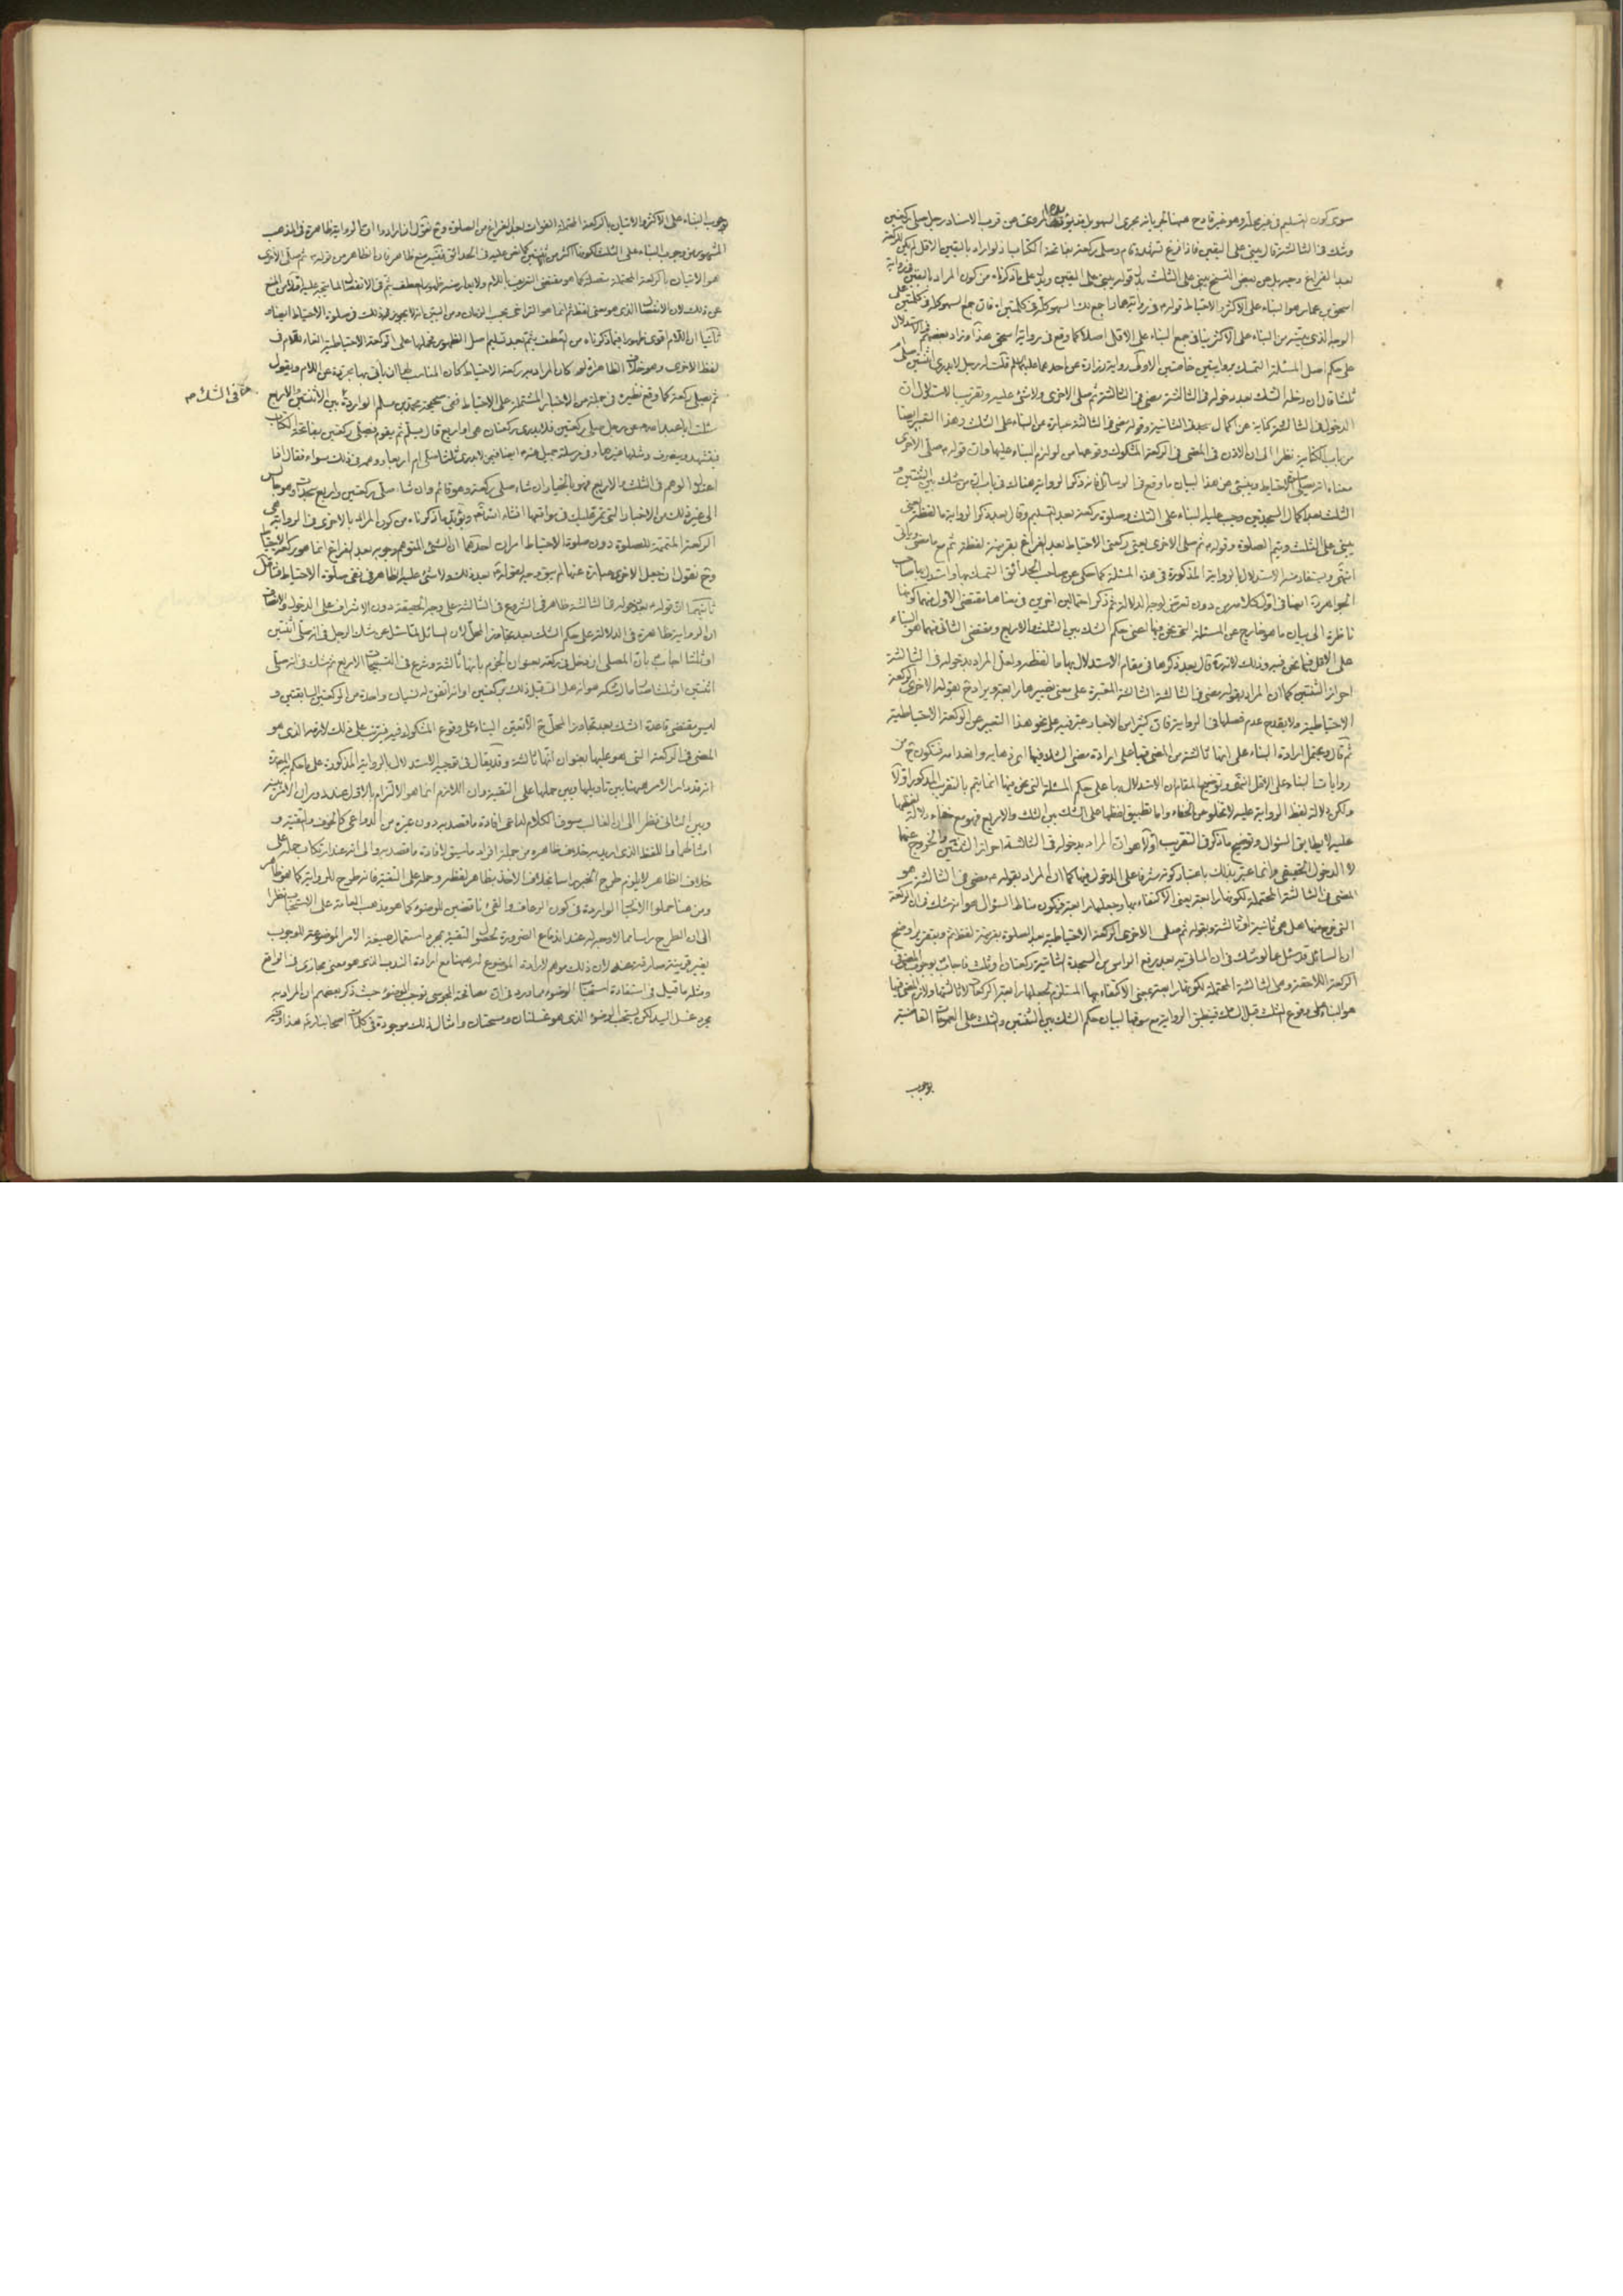 سوى كون التسليم في غير محله وهو غير قادح هنا لجريانه مجرى السهو بل يؤيده المروي عن قرب الاسناد رجل صلى ركعتين
وشك في الثالثة قال يبني على اليقين فاذا فرغ تشهد وقام وصلى ركعة بفاتحة الكتاب اذ لو اراد باليقين الاقل لم يكن للركعة
بعد الفراغ وجه بل عن بعض النسخ يبني على الثلث بدل قوله يبني على اليقين ويدل على ما ذكرناه من كون المراد باليقين في رواية
اسحق بن عمار هو البناء على الاكثر والاحتياط قوله في رواية عمار اجمع لك السهو كله في كلمتين فان جمع السهو كله في كلمتين على
الوجه الذي من البناء على الاكثر ينافي جمع البناء على الاقل اصلا كما وقع في رواية اسحق هذا وزاد بعضهم في الاستدلال
على حكم اصل المسئلة التمسك بروايتين خاصتين الاولى رواية زرارة عن احدهما عليهما السلام قلت له رجل لا يدري اثنتين صلى ام
ثلثا قال ان دخله الشك بعد دخوله في الثالثة مضى في الثالثة ثم صلى الاخرى ولا شئ عليه وتقريب الاستدلال ان
الدخول في الثالثة كناية عن اكمال سجدتي الثانية وقوله مضى في الثالثة عبارة عن البناء على الثلث وهذا التعبير ايضا
من باب الكناية نظرا الى ان الاذن في المضي في الركعة المشكوك وقوعها من لوازم البناء عليها وان قوله ثم صلى الاخرى
معناه انه يصلي الاحتياط وينبئ عن هذا البيان ما وقع في الوسائل فانه ذكر الرواية هناك في باب ان من شك بين الثنتين و
الثلث بعد اكمال السجدتين وجب عليه البناء على الثلث وصلوة ركعة بعد التسليم وقال بعد ذكر الرواية ما لفظه يعني
يبني على الثلث ويتم الصلوة وقوله ثم صلى الاخرى يعني ركعتي الاحتياط بعد الفراغ بقرينة لفظة ثم مع ما مضى ويأتي
انتهى ويستفاد منه الاستدلال بالرواية المذكورة في هذه المسئلة كما حكى عن صاحب الحدائق التمسك بها واستدل بها صاحب
الجواهر ره ايضا في اول كلامه من دون تعرض لوجه الدلالة ثم ذكر احتمالين اخرين في معناها مقتضى الاول منهما كونها
ناظرة الى بيان ما هو خارج عن المسئلة التي نحن فيها اعني حكم الشك بين الثلث والاربع ومقتضى الثاني منهما هو البناء
على الاقل فيما نحن فيه وذلك لانه ره قال بعد ذكرها في مقام الاستدلال بها ما لفظه ولعل المراد بدخوله في الثالثة
احراز الثنتين كما ان المراد بقوله مضى في الثالثة الثالثة المعتبرة على معنى تصييرها رابعة ويراد ح بقوله الاخرى الركعة
الاحتياطية ولا يقدح عدم فصلها في الرواية فان كثيرا من الاخبار عبر فيه على نحو هذا التعبير عن الركعة الاحتياطية
ثم قال ويحتمل ارادة البناء على انها ثالثة من المضي فيها على ارادة مضى الشك فيها اي ذهابه وانعدامه فتكون ح من
روايات البناء على الاقل انتهى وتوضيح المقام ان الاستدلال بها على حكم المسئلة التي نحن فيها انما يتم بالتقريب المذكور اولا
ولكن دلالة لفظ الرواية عليه لا تخلو من الخفاء واما تطبيق لفظها على الشك بين الثلث والاربع فهو مع خفاء دلالة لفظها
عليه لا يطابق السؤال وتوضيح ما ذكر في التقريب اولا هو ان المراد بدخوله في الثالثة احراز الثنتين والخروج عنهما
لا الدخول الحقيقي وانما عبر بذلك باعتبار كونه مشرفا على الدخول فيها كما ان المراد بقوله مضى في الثالثة هو
المضي في الثالثة المحتملة لكونها رابعة يعني الاكتفاء بها وجعلها رابعة فيكون مناط السؤال هو انه شك في ان الركعة
التي خرج منها هل هي ثانية او ثالثة وبقوله ثم صلى الاخرى الركعة الاحتياطية بعد الصلوة بقرينة لفظ ثم وبتقرير اوضح
ان السائل قد سئل عما لو شك في ان المأتي به بعد رفع الراس من السجدة الثانية ركعتان او ثلث فاجاب بوجوب المضي في
الركعة اللاحقة وهي الثالثة المحتملة لكونها رابعة بمعنى الاكتفاء بها المستلزم لجعلها رابعة الركعات لا ثالثتها ولازم المضي فيها
هو البناء على وقوع الثلث قبل الشك فينطبق الرواية مع سوقها لبيان حكم الشك بين الثنتين والثلث على العمومات القاضية
بوجوب
بوجوب البناء على الاكثر والاتيان بالركعة المحتملة الفوات بعد الفراغ من الصلوة وح نقول ان ارادوا ان الرواية ظاهرة في المذهب
المشهور من وجوب البناء على الثلث لكونها اكثر من ثنتين كما نص عليه في الحدائق ففيه منع ظاهر فان الظاهر من قوله ثم صلى الاخرى
هو الاتيان بالركعة المحتملة متصلة كما هو مقتضى التعريف باللام ولا يعارضه ظهور العطف بثم في الانفصال لما يتجه عليه اولا من المنع
عن ذلك لان الانفصال الذي هو معنى لفظة ثم انما هو التراخي بحسب الزمان ومن البين انه لا يجوز ذلك في صلوة الاحتياط ايضا و
ثانيا ان اللام اقوى ظهورا فيما ذكرناه من العطف بثم بعد تسليم اصل الظهور فحملها على الركعة الاحتياطية الغاء للام في
لفظ الاخرى وهو خلاف الظاهر اذ لو كان المراد به ركعة الاحتياط كان المناسب لها ان يأتي بها مجردة عن اللام ويقول
ثم يصلي ركعة كما وقع نظيره في جملة من الاخبار المشتملة على الاحتياط ففي صحيحة محمد بن مسلم الواردة بين الاثنتين والاربع
هنا في الشك
سئلت ابا عبد الله عن رجل صلى ركعتين فلا يدري ركعتان هي او اربع قال يسلم ثم يقوم فيصلي ركعتين بفاتحة الكتاب
فيتشهد وينصرف ومثلها غيرها وفي مرسلة جميل عنه ايضا فيمن لا يدري ثلثا صلى ام اربعا ووهمه في ذلك سواء فقال اذا
اعتدل الوهم في الثلث والاربع فهو بالخيار ان شاء صلى ركعة وهو قائم وان شاء صلى ركعتين واربع سجدات وهو جالس
الى غير ذلك من الاخبار التي تمر عليك في مواقعها انشاء الله تعالى ويؤيد ما ذكرناه من كون المراد بالاخرى في الرواية هي
الركعة المتممة للصلوة دون صلوة الاحتياط امران احدهما ان الشئ المتوهم وجوبه بعد الفراغ انما هو ركعة الاحتياط
وح نقول ان جعل الاخرى عبارة عنها لم يبق وجه لقوله بعد ذلك ولا شئ عليه الظاهر في نفي صلوة الاحتياط فتأمل
ثانيهما ان قوله بعد دخوله في الثالثة ظاهر في الشروع في الثالثة على وجه الحقيقة دون الاشراف على الدخول والانصاف
ان الرواية ظاهرة في الدلالة على حكم الشك بعد تجاوز المحل لان السائل لما سئل عن شك الرجل في انه صلى اثنتين
او ثلثا اجاب بان المصلي ان دخل في ركعة بعنوان الجزم بانها ثالثة وشرع في التسبيحات الاربع ثم شك في انه صلى
اثنتين او ثلثا
ليس مقتضى قاعدة الشك بعد تجاوز المحل ح الا تعيّن البناء على وقوع المشكوك فيه فيترتب على ذلك لازمه الذي هو
المضي في الركعة التي هو عليها بعنوان انها ثالثة وقد يقال في توجيه الاستدلال بالرواية المذكورة على ما حكم به
انه قد دار الامر هيهنا بين تأويلها وبين حملها على التقية وان اللازم انما هو الالتزام بالاول عند دوران الامر بينه
وبين الثاني نظرا الى ان الغالب سوق الكلام لداعي افادة ما قصد به دون غيره من الدواعي كالخوف والتقية و
امثالهما واللفظ الذي اريد به خلاف ظاهره من جملة افراد ما سيق لافادة ما قصد به والى انه عند ارتكاب حمله على
خلاف الظاهر لا يلزم طرح الخبر راسا بخلاف الاخذ بظاهر لفظه وحمله على التقية فانه طرح للرواية كما هو ظاهر
ومن هنا حملوا الاخبار الواردة في كون الرعاف والقئ ناقضين للوضوء كما هو مذهب العامة على الاستحباب نظرا
الى ان الطرح راسا مما لا وجه له عند اندفاع الضرورة لحصول التقية بمجرد استعمال صيغة الامر الموضوعة للوجوب
بغير قرينة صارفة عنه لان ذلك موهم لارادة الموضوع له هيهنا مع ارادة الندب الذي هو معنى مجازي في الواقع
ومثله ما قيل في استفادة استحباب الوضوء مما ورد في ان مصافحة المجوسي توجب الوضوء حيث ذكر بعضهم ان المراد به
مجرد غسل اليد لكن يستحب الوضوء الذي هو غسلتان ومسحتان وامثال ذلك موجودة في كلمات اصحابنا ره هذا وفيه